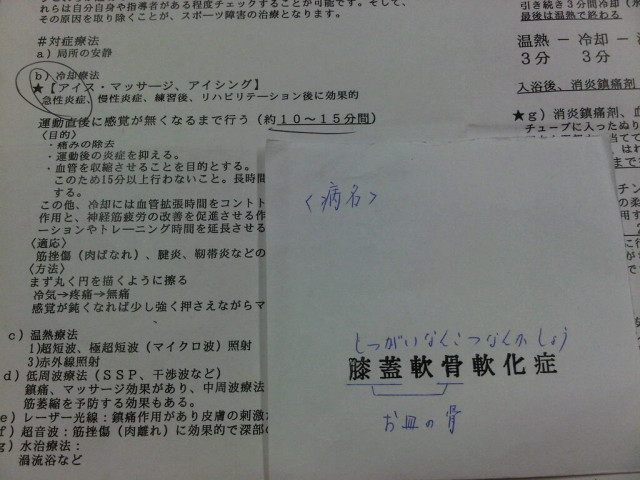 れらは自分自身や指導者がある程度チェックすることが可能です。そして、
その原因を取り除くことが、スポーツ障害の治療となります。
#対症療法
a)局所の安静
b)冷却療法
★【アイス・マッサージ、アイシング】
急性炎症、慢性炎症、練習後、リハビリテーション後に効果的
運動直後に感覚が無くなるまで行う(約10~15分間)
〈目的〉
・痛みの除去
・運動後の炎症を抑える。
・血管を収縮させることを目的とする。
このため15分以上行わないこと。長時間
する。
この他、冷却には血管拡張時間をコント
作用と、神経筋疲労の改善を促進させる作
ーションやトレーニング時間を延長させる
〈適応〉
筋挫傷(肉ばなれ)、腱炎、靭帯炎などの
〈方法〉
まず丸く円を描くように擦る
冷気→疼痛→無痛
感覚が鈍くなれば少し強く押さえながらマ
c)温熱療法
1)超短波、極超短波(マイクロ波)照射
3)赤外線照射
d)低周波療法(SSP、干渉波など)
鎮痛、マッサージ効果があり、中周波療法
筋萎縮を予防する効果もある。
e)レーザー光線:鎮痛作用があり皮膚の刺激
f)超音波:筋挫傷(肉離れ)に効果的で深部の
g)水治療法:
渦流浴など
引き続き3分間冷却(水
最後は温熱で終わる
温熱-冷却-
3分 3分
入浴後、消炎鎮痛剤
★g)消炎鎮痛剤、血
チューブに入ったぬり
〈病名〉
しつがいなんこつなんかしょう
膝蓋軟骨軟化症
お皿の骨